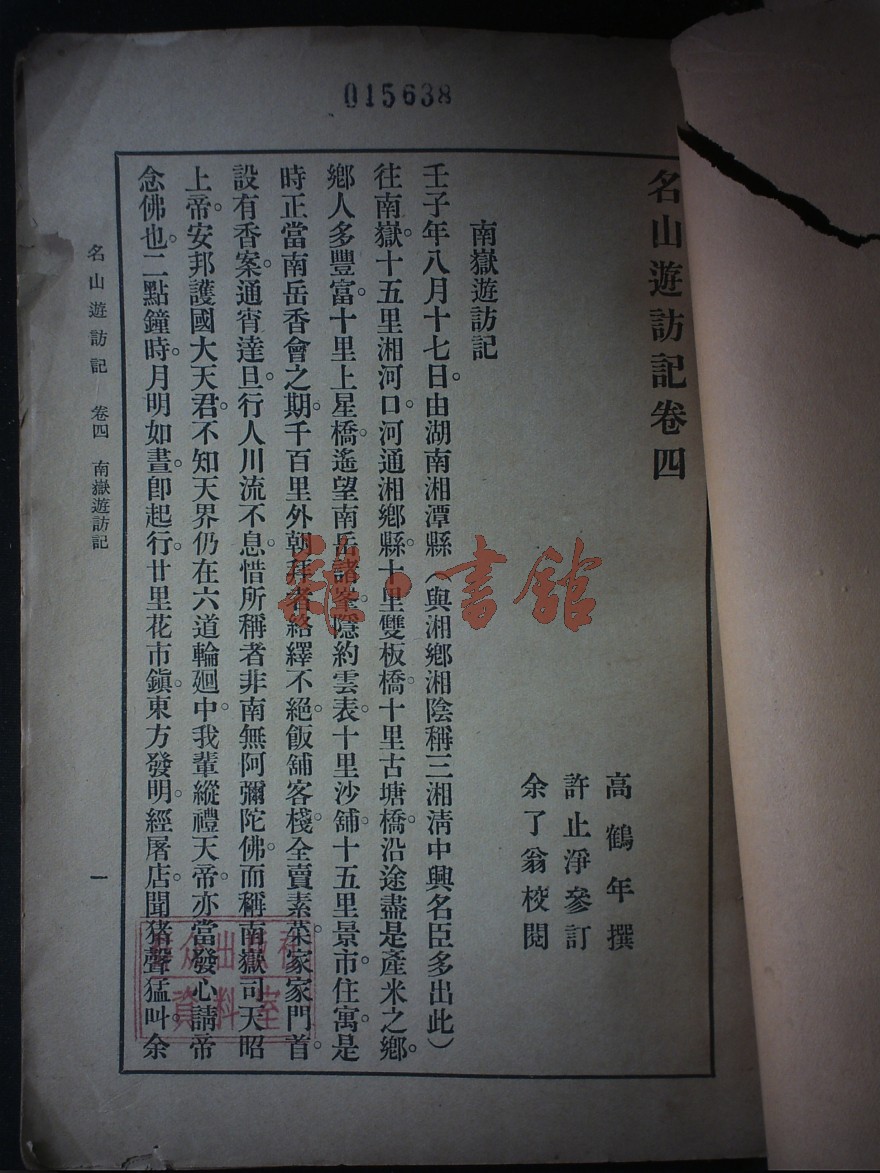 015638
名山遊訪記卷四
高鶴年撰
許止淨參訂
余了翁校閱
南嶽遊訪記
壬子年八月十七日。由湖南湘潭縣（與湘鄉湘陰稱三湘清中興名臣多出此）
往南嶽。十五里湘河口。河通湘鄉縣。十里雙板橋。十里古塘橋。沿途盡是產米之鄉。
鄉人多豐富。十里上星橋。遙望南岳諸峯。隱約雲表。十里沙舖。十五里景市。住寓。是
時正當南岳香會之期。千百里外。朝拜者絡繹不絕。飯舖客棧。全賣素菜。家家門首。
設有香案。通宵達旦。行人川流不息。惜所稱者非南無阿彌陀佛。而稱南嶽司天昭
上帝。安邦護國大天君。不知天界仍在六道輪廻中。我輩縱禮天帝。亦當發心請帝
念佛也。二點鐘時。月明如晝。卽起行。廿里花市鎮。東方發明。經屠店。聞猪聲猛叫。余
名山遊訪記 卷四 南嶽遊訪記
一
雜·書館
众出版社
資料室